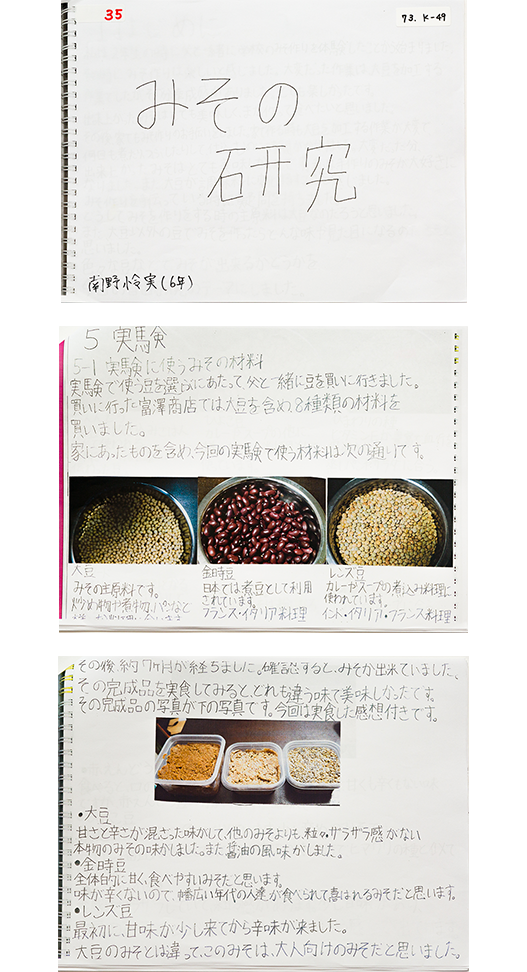 35
73. K-49
みその
研究
南野怜実(6年)
5 実験
5-1 実験に使うみその材料
実験で使う豆を選ぶにあたって父と一緒に豆を買いに行きました。
買いに行った富澤商店では、大豆を含め、8種類の材料を
買いました。
家にあったものを含め、今回の実験で使う材料は次の通りです。
大豆
みその主原料です。
炒め物や煮物、パンなど
金時豆
日本では煮豆として利用
されています。
フランス・イタリア料理
レンズ豆
カレーやスープの煮込み料理に
使われています。
インド・イタリア・フランス料理
その後、約7ヶ月が経ちました。確認すると、みそが出来ていました、
その完成品を実食してみると、どれも違う味で美味しかったです。
その完成品の写真が下の写真です。今回は実食した感想付きです。
•大豆
甘さと辛さが混ざった味がして、他のみそよりも、粒のサラサラ感がない
本物のみその味がしました。また醤油の風味がしました。
•金時豆
全体的に甘く、食べやすいみそだと思います。
味が辛くないので、幅広い年代の人達が食べられて喜ばれるみそだと思います。
•レンズ豆
最初に、甘味が少し来てから辛味が来ました。
大豆のみそとは違って、このみそは、大人向けのみそだと思いました。